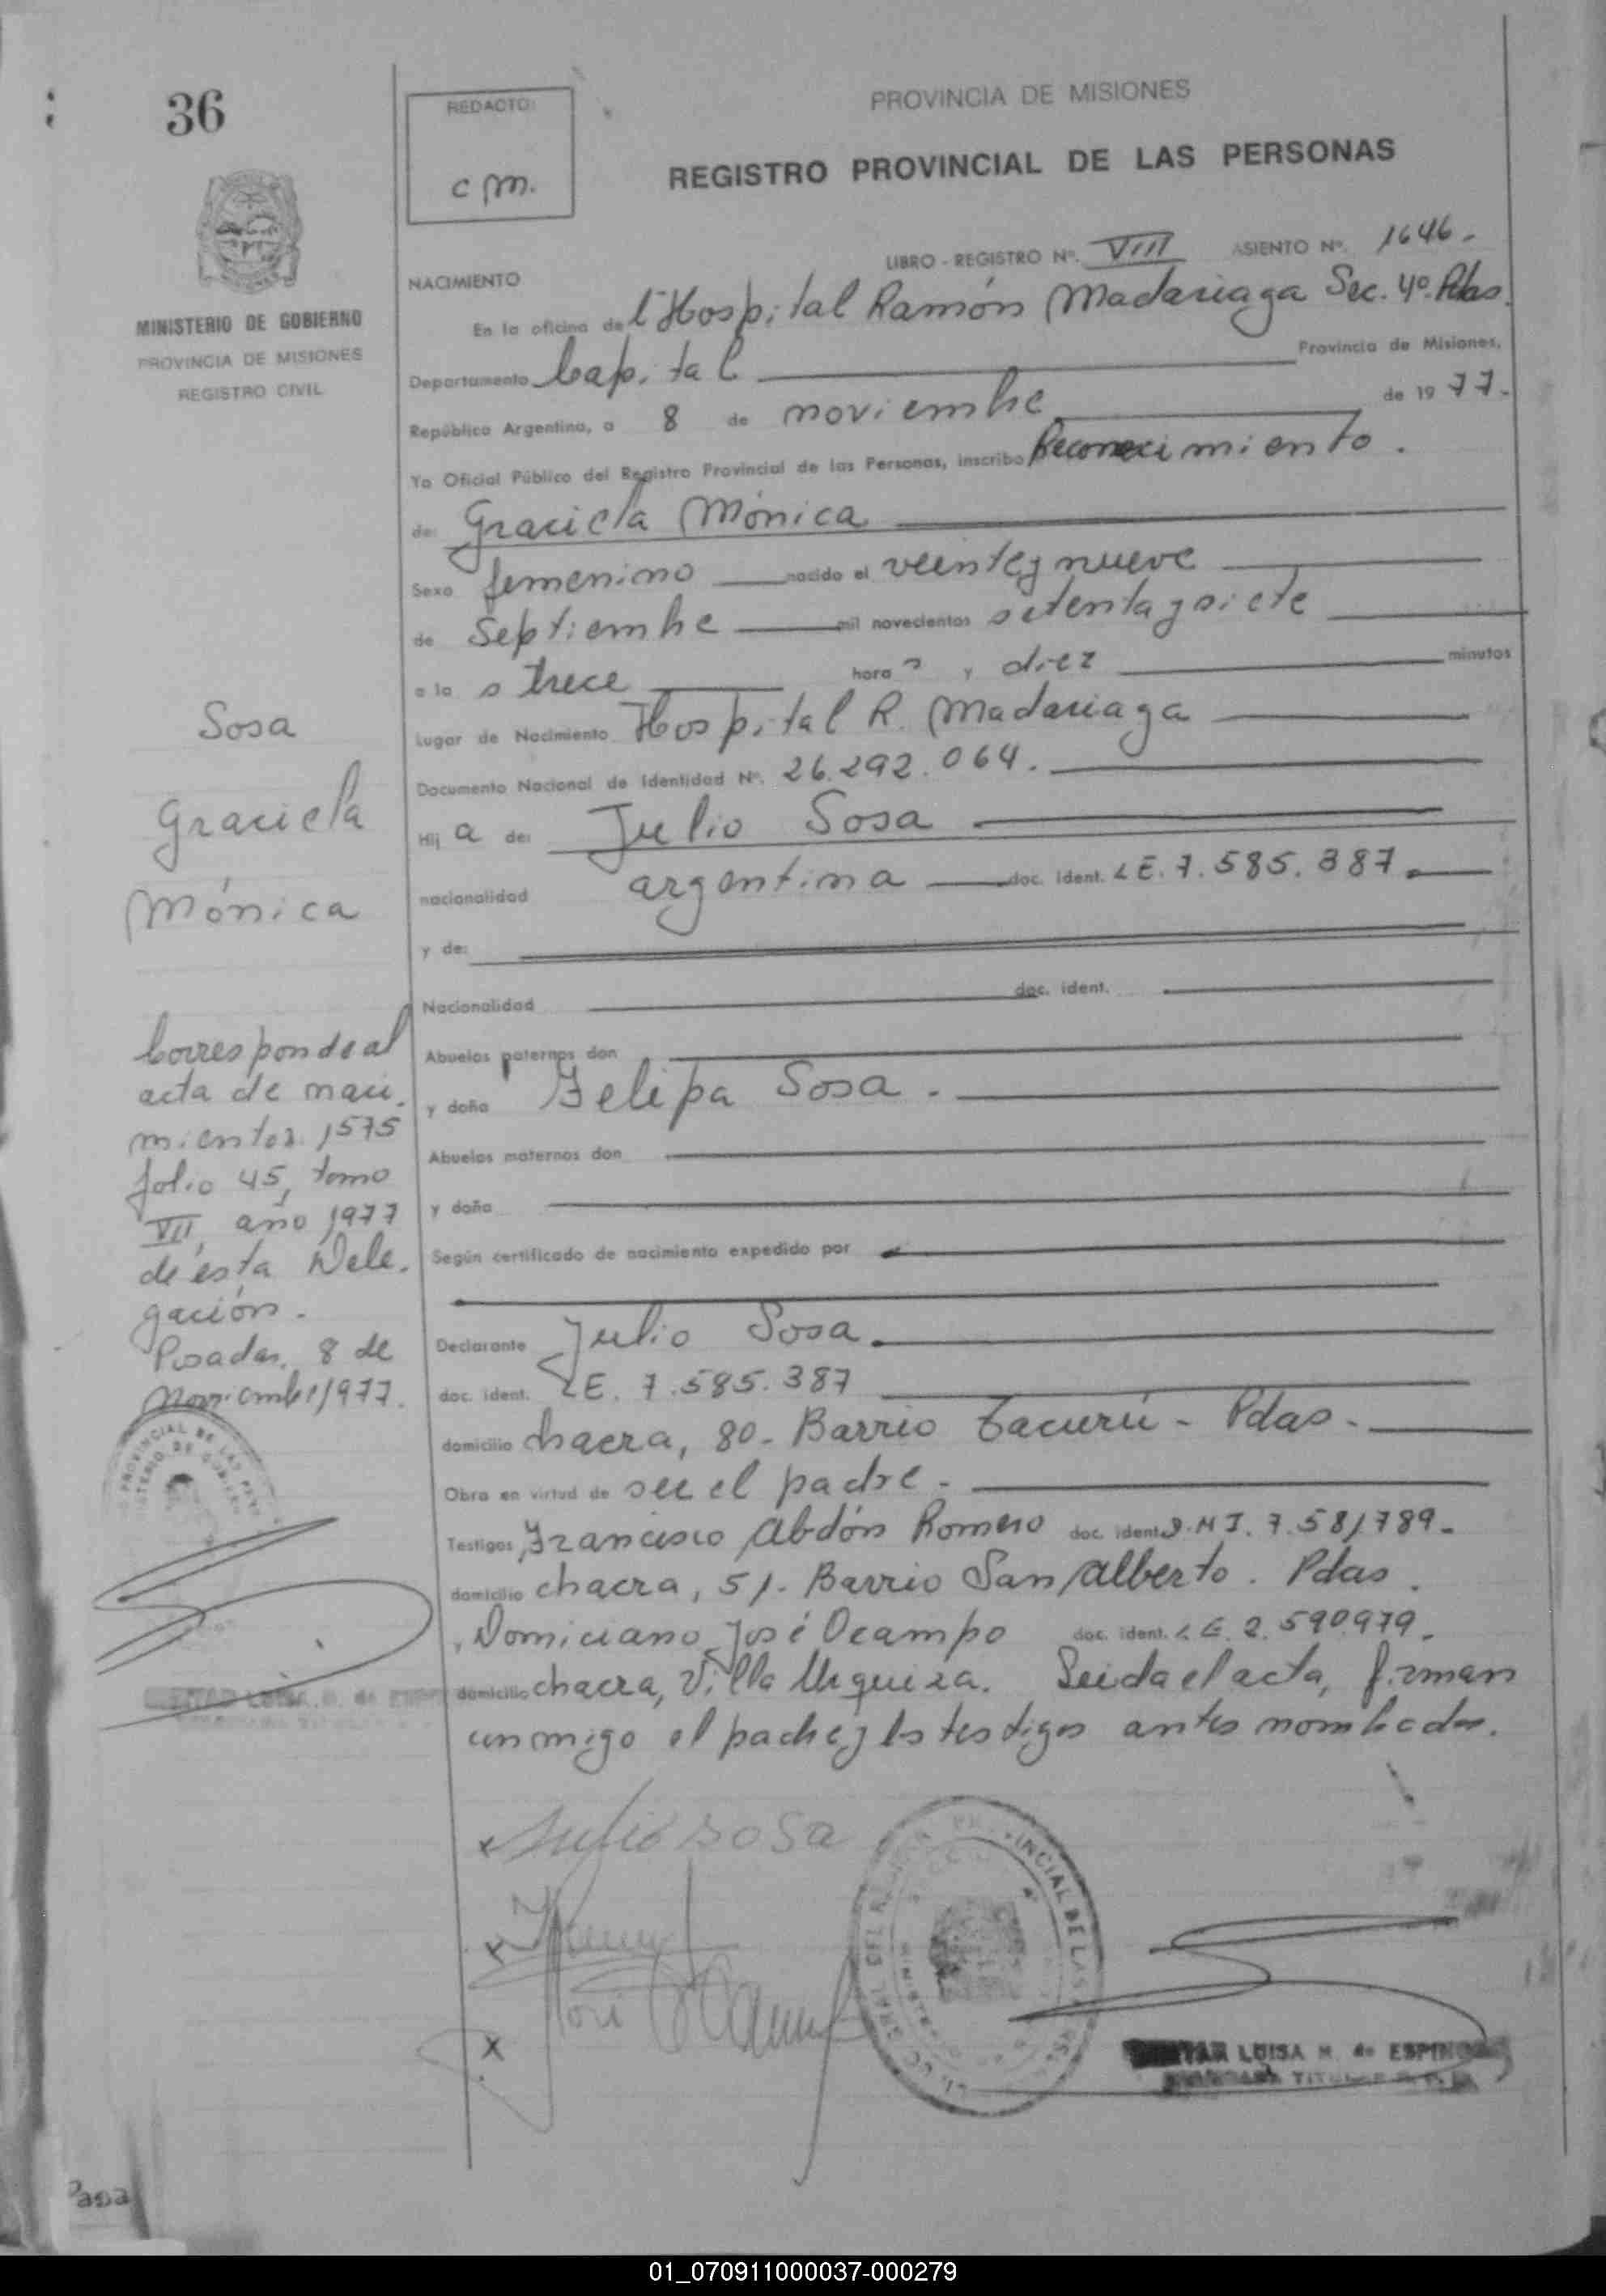 36
REDACTO:
c m.
PROVINCIA DE MISIONES
REGISTRO PROVINCIAL DE LAS PERSONAS
MINISTERIO DE GOBIERNO
PROVINCIA DE MISIONES
REGISTRO CIVIL
LIBRO - REGISTRO Nº. VIII ASIENTO Nº. 1646.
NACIMIENTO
En la oficina de l Hospital Ramón Madariaga Sec. 4º. Pdas.
Departamento Capital Provincia de Misiones,
República Argentina, a 8 de noviembre de 1977.
Yo Oficial Público del Registro Provincial de las Personas, inscribo Reconocimiento.
de: Graciela Mónica
Sexo femenino nacido el veinte y nueve
de septiembre mil novecientos setenta y siete
a la s trece hora s y diez minutos
Lugar de Nacimiento Hospital R. Madariaga
Documento Nacional de Identidad Nº. 26.292.064.
Hij a de: Julio Sosa
nacionalidad argentina doc. ident. LE. 7.585.387.
y de:
Nacionalidad doc. ident.
Abuelos paternos don
y doña Felipa Sosa.
Abuelos maternos don
y doña
Según certificado de nacimiento expedido por
Declarante Julio Sosa.
doc. ident. LE. 7.585.387
domicilio chacra, 80. Barrio Tacurú - Pdas.
Obra en virtud de ser el padre.
Testigos Francisco Abdón Romero doc. ident. D.M I. 7.581789.
domicilio chacra, 51. Barrio San Alberto. Pdas.
y Domiciano José Ocampo doc. ident. L E. 2.590.979.
domicilio chacra, Villa Urquiza. Leida el acta, firman
conmigo el padre y los testigos antes nombrados.
Sosa
Graciela
Mónica
Corresponde al
acta de naci.
mientos. 1575
folio 45, tomo
VII, año 1977
de esta Dele.
gación.
Posadas, 8 de
Noviembre 1977.
x Julio sosa
x
x José Ocampo
LUISA M. de ESPINOSA
01_070911000037-000279